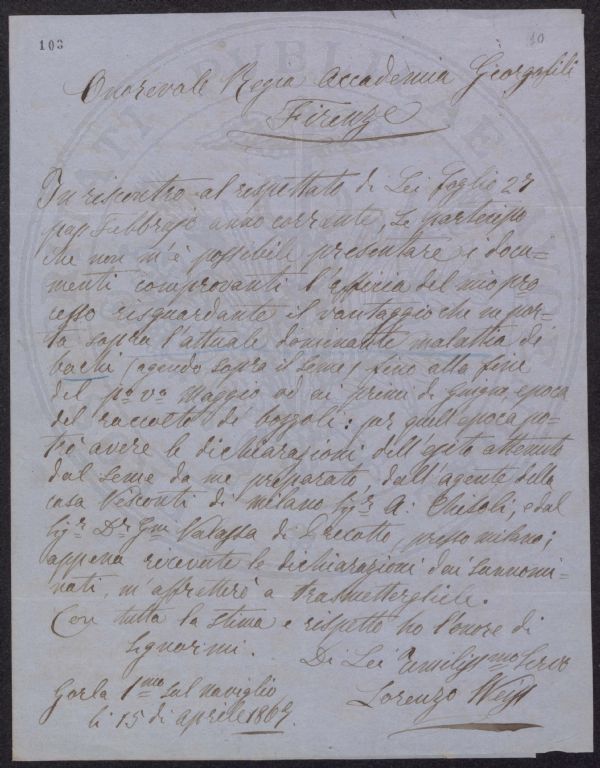 103
10
Onorevole Regia Accademia Georgofili
Firenze
In riscontro al rispettato di Lei foglio 27
pap Febbrajo anno corrente, Le partecipo
che non m'è possibile presentare i docu-
menti comprovanti l'efficia del mio pro
cesso risguardante il vantaggio che va por-
ta sopra l'attuale dominante malattia di
bachi (agendo sopra il seme) fino alla fine
del po vo Maggio od ai primi di Giugno, epoca
del raccolto di bozzoli: per quell'epoca po-
trò avere le dichiarazioni dell'esito ottenuto
dal seme da me preparato, dall'agente della
casa Visconti di Milano Sigr A: Ghisoli, e dal
Sigr Dr di Precotto presso Milano;
appena ricevute le dichiarazioni dai sunnomi-
nati, m'affretterò a trasmettergliele.
Con tutta la stima e rispetto ho l'onore di
segnarmi.
Di Lei Umilissmo Servo
Gorla 1mo sul naviglio
Lorenzo Weiss
li 15 di aprile 1867